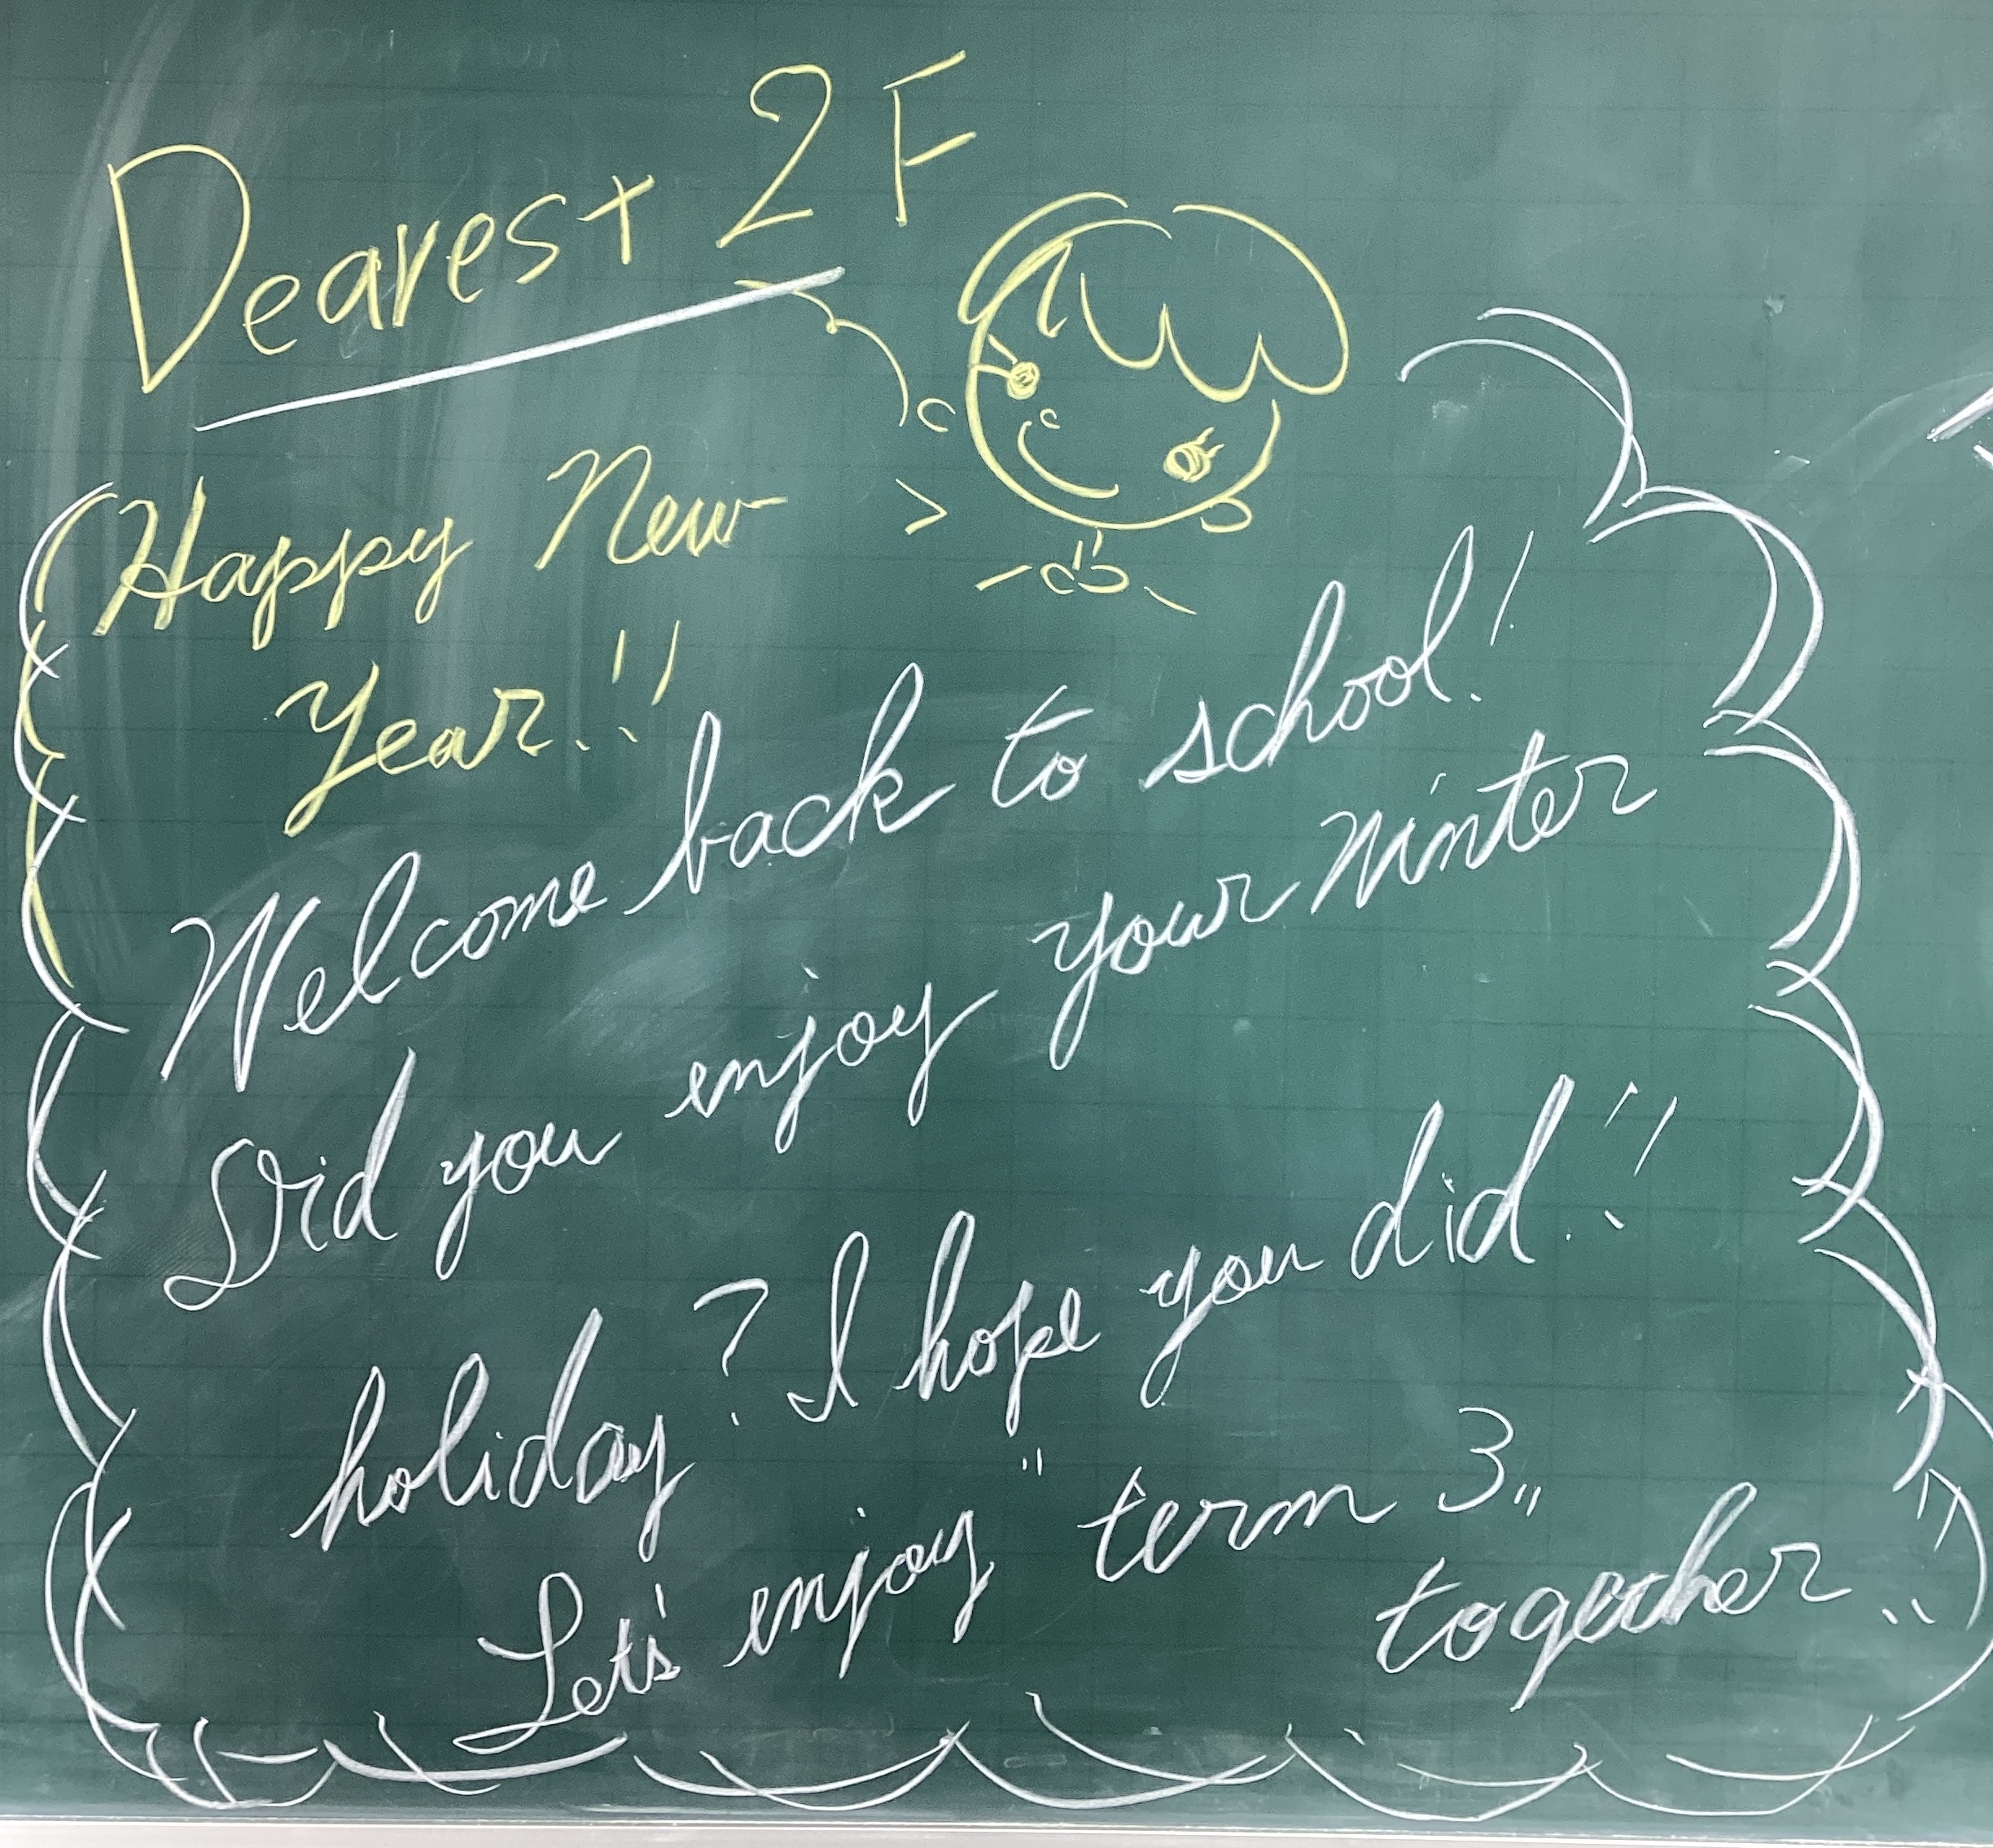 Dearest 2F
Happy New
Year!!
Welcome back to school!
Did you enjoy your winter
holiday? I hope you did!!
Let's enjoy "term 3"
together!!